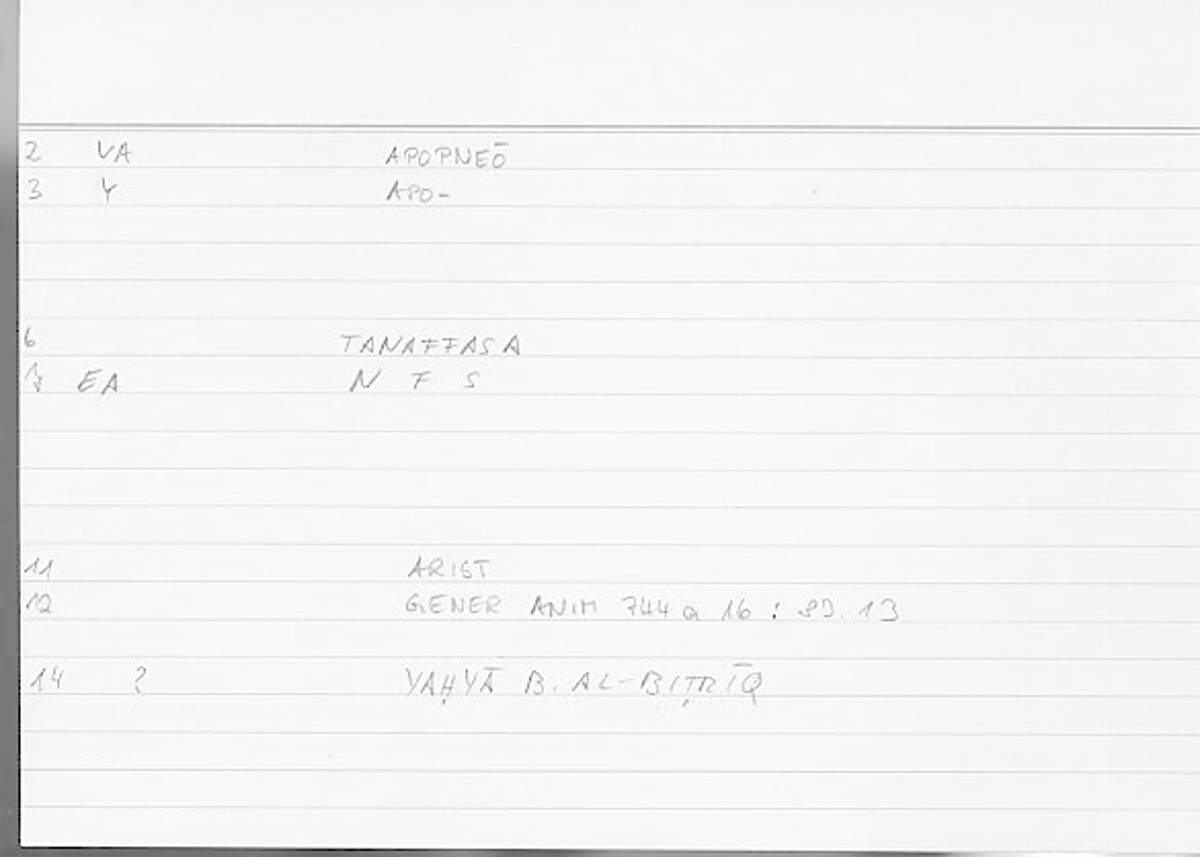 2 VA APOPNEŌ
3 Y APO-
6 TANAFFASA
7 EA N F S
11 ARIST
12 GENER ANIM 744 a 16 : 83. 13
14 ? YAḤYĀ B. AL-BIṬRĪQ